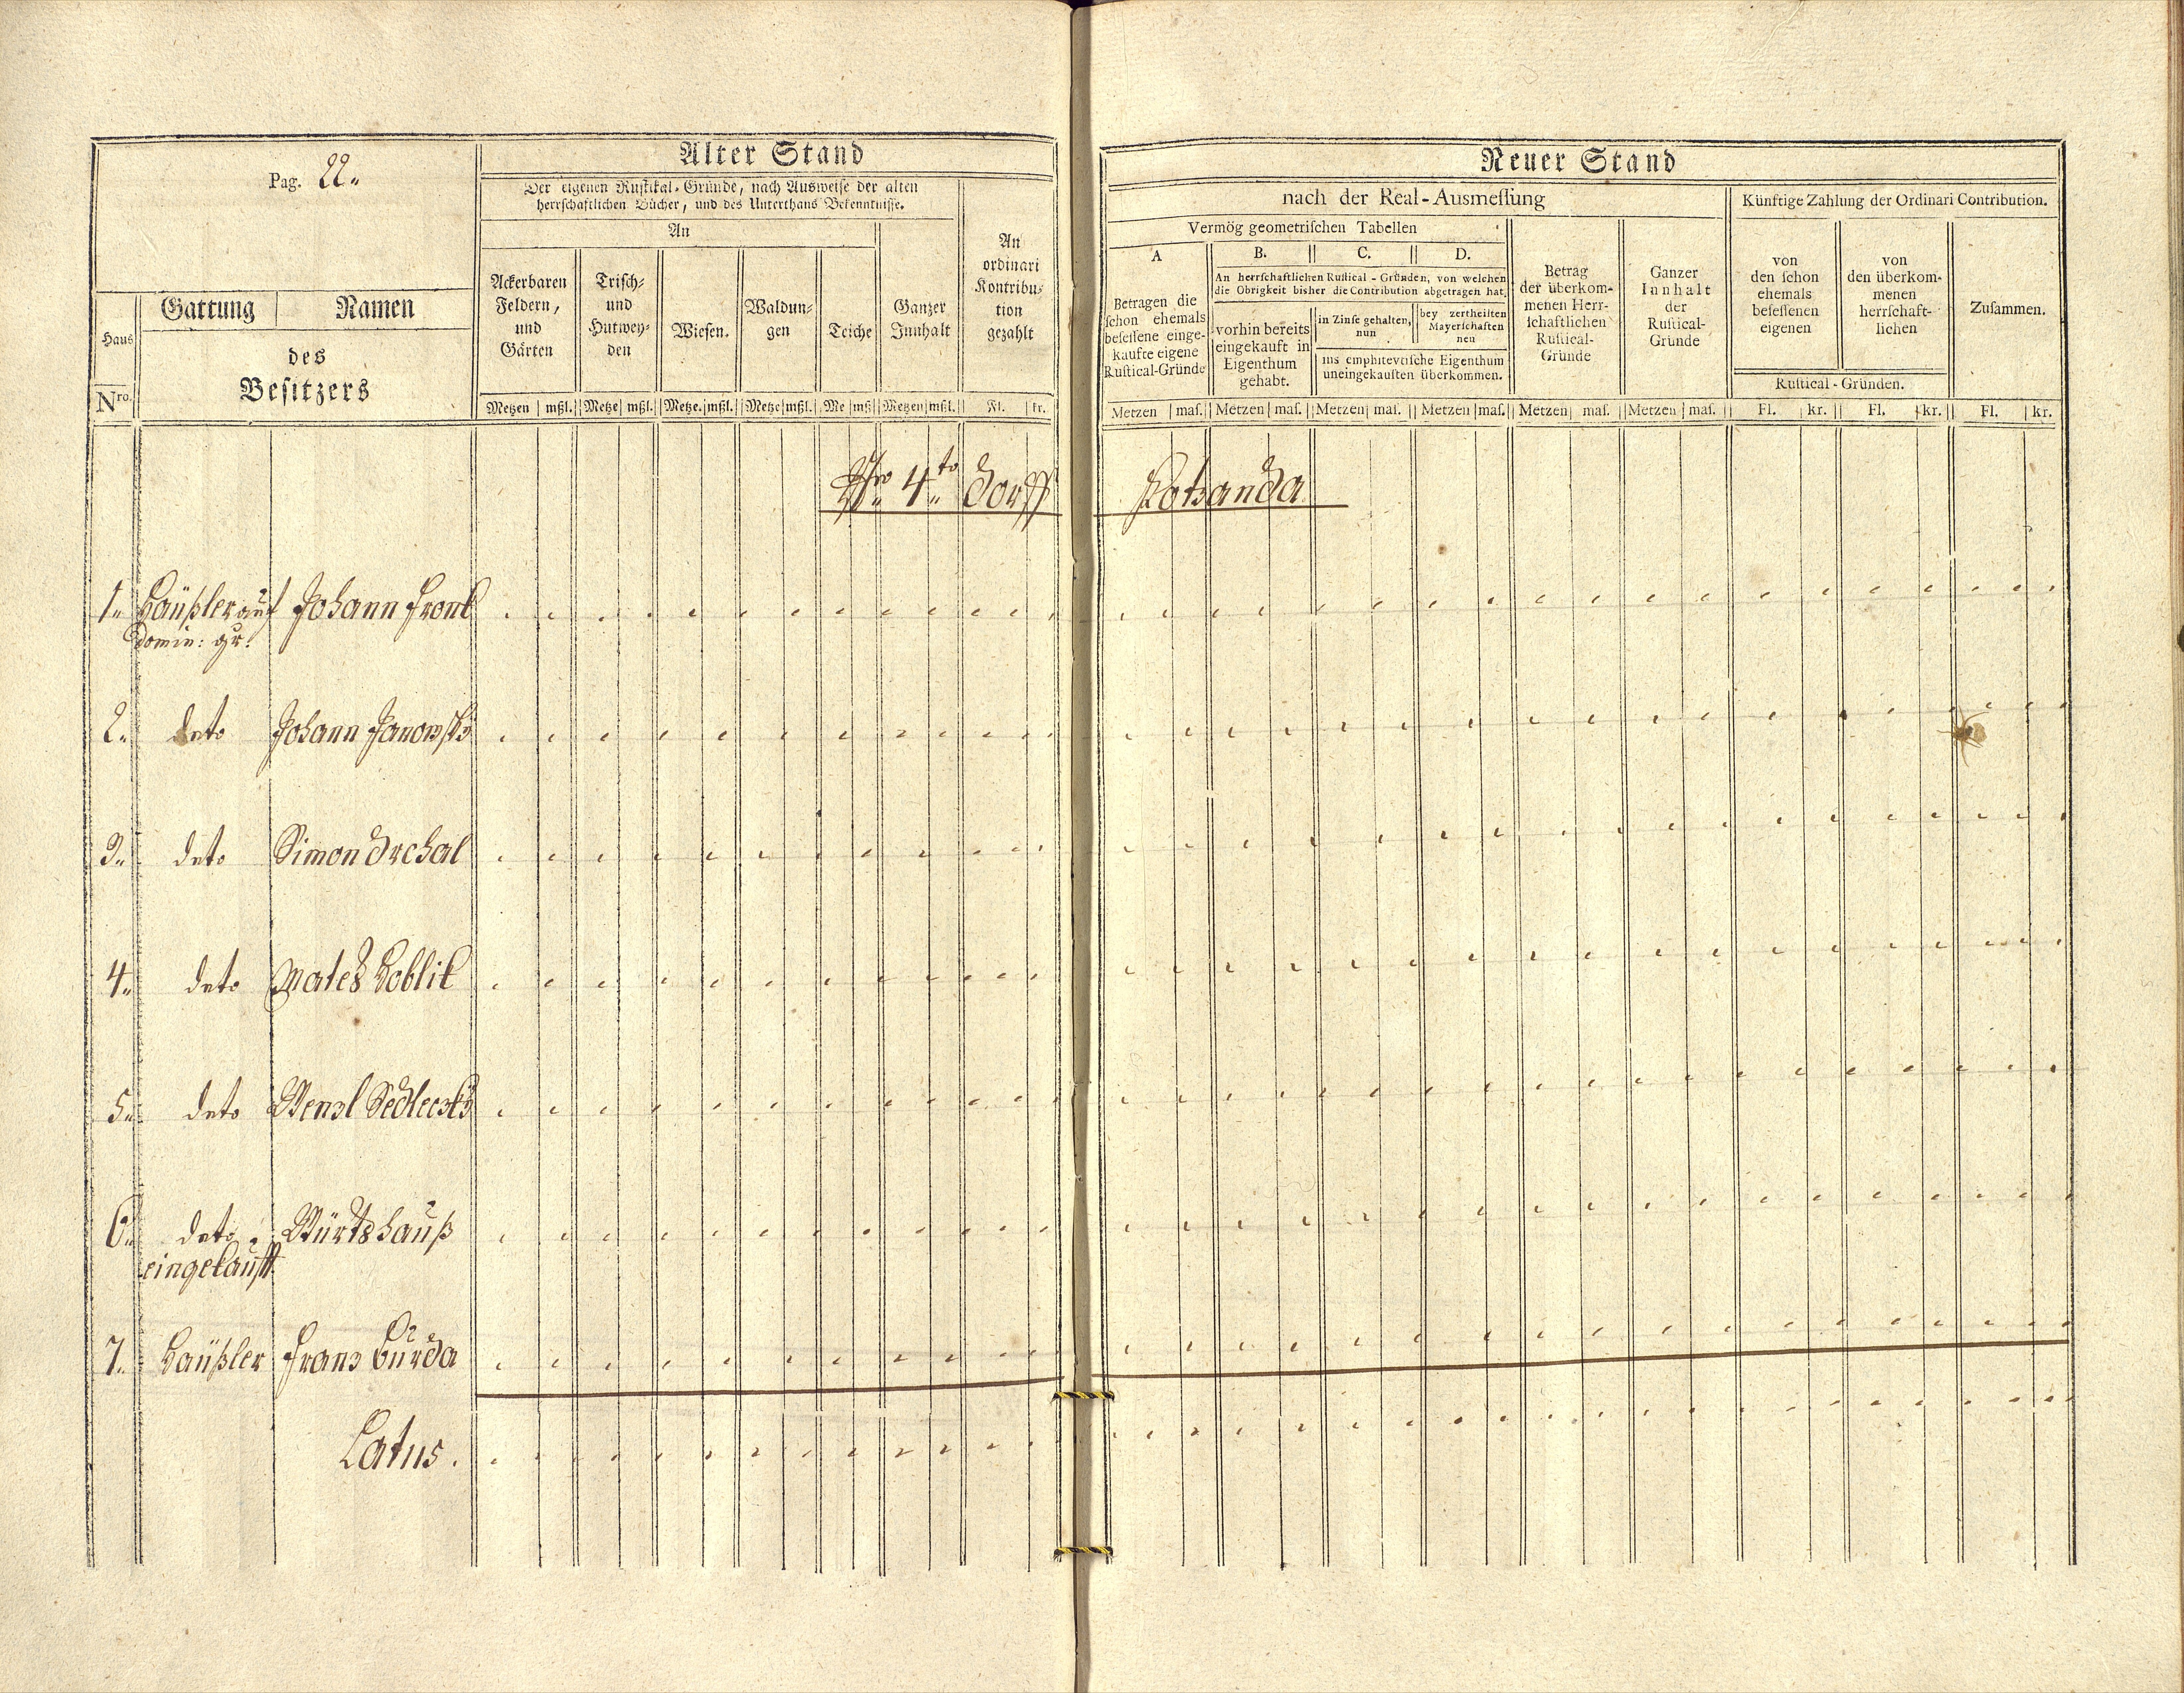 Pag. 22.
Haus
Nro.
Gattung | Namen
des
Besitzers
Alter Stand
Der eigenen Rustikal-Gründe, nach Ausweise der alten
herrschaftlichen Bücher, und des Unterthans Bekenntnisse.
An
Ackerbaren
Feldern,
und
Gärten
Trisch-
und
Hutwey-
den
Wiesen.
Waldun-
gen
Teiche
Ganzer
Innhalt
An
ordinari
Kontribu-
tion
gezahlt
Metzen | mßl. Metze | mßl. Metze. | mßl. Metze | mßl. Me | mß Metzen | mßl. Fl. | kr.
Neuer Stand
nach der Real-Ausmessung
Vermög geometrischen Tabellen
A
Betragen die
schon ehemals
besessene einge-
kaufte eigene
Rustical-Gründe
B. C. D.
An herrschaftlichen Rustical-Gründen, von welchen
die Obrigkeit bisher die Contribution abgetragen hat.
vorhin bereits
eingekauft in
Eigenthum
gehabt.
in Zinse gehalten,
nun
bey zertheilten
Mayerschaften
neu
ins emphitevtische Eigenthum
uneingekauften überkommen.
Betrag
der überkom-
menen Herr-
schaftlichen
Rustical-
Gründe
Ganzer
Innhalt
der
Rustical-
Gründe
Künftige Zahlung der Ordinari Contribution.
von
den schon
ehemals
besessenen
eigenen
von
den überkom-
menen
herrschaft-
lichen
Rustical-Gründen.
Zusammen.
Metzen | mas. Metzen | mas. Metzen | mas. Metzen | mas. Metzen | mas. Metzen | mas. Fl. | kr. Fl. | kr. Fl. | kr.
Nro 4to Dorff Kotzanda
1. Häußler auf Johann Fronk
Domin: gr:
2. deto Johann Janowsky
3. deto Simon Drchal
4. deto Mates Koblik
5. deto Wenzl Sedleczky
6. deto Würtshauß
eingekaufft
7. Häußler Franz Burda
Latus.